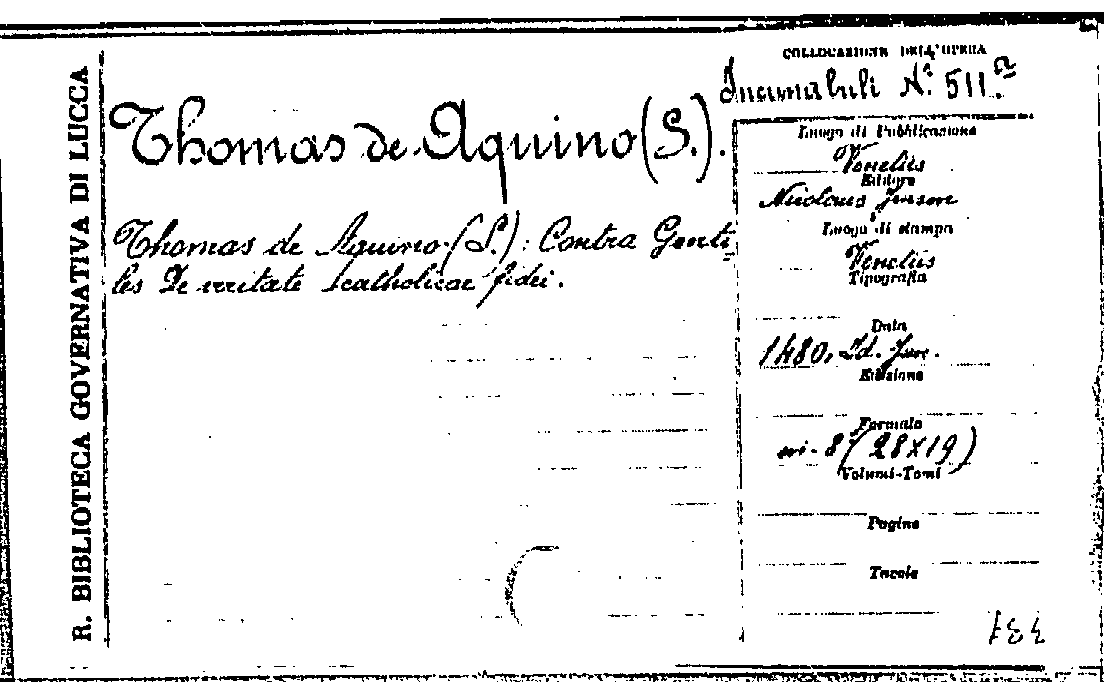 R. BIBLIOTECA GOVERNATIVA DI LUCCA
Thomas de Aquino (S.).
Thomas de Aquino (S.): Contra Genti
les De veritate catholicae fidei.
COLLOCAZIONE DELL'OPERA
Incunabuli N.° 511.
Luogo di Pubblicazione
Venetiis
Editore
Nicolaus Jenson
Luogo di stampa
Venetiis
Tipografia
Data
1480, Id. Jun.
Edizione
Formato
in-8° (28x19)
Volumi-Tomi
Pagine
Tavole